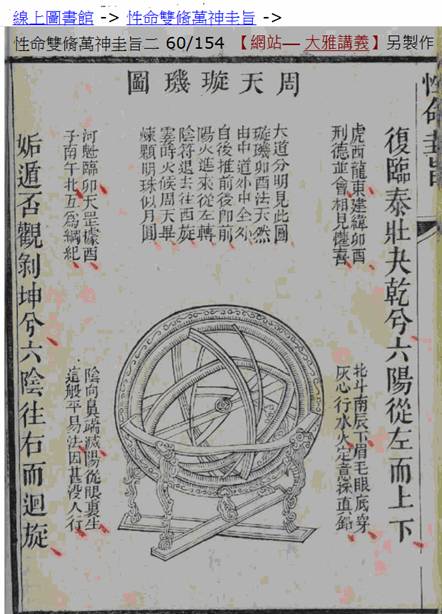 線上圖書館 -> 性命雙脩萬神圭旨 ->
性命雙脩萬神圭旨二 60/154 【網站— 大雅講義】另製作
性命圭旨
周天璇璣圖
復臨泰壯夬乾兮六陽從左而上下
虎西龍東建緯卯酉
刑德並會相見懽喜
北斗南辰下眉毛眼底穿
灰心行水火定意採真鉛
大道分明見此圖
璇璣卯酉法天然
由中道外中全外
自後推前後即前
陽火進來從左轉
陰符退去往西旋
霎時火候周天畢
煉顆明珠似月圓
河魁臨卯天罡據酉
子南午北互為綱紀
陰向鼻端滅陽從眼裏生
這般平易法因甚沒人行
姤遁否觀剝坤兮六陰往右而迴旋